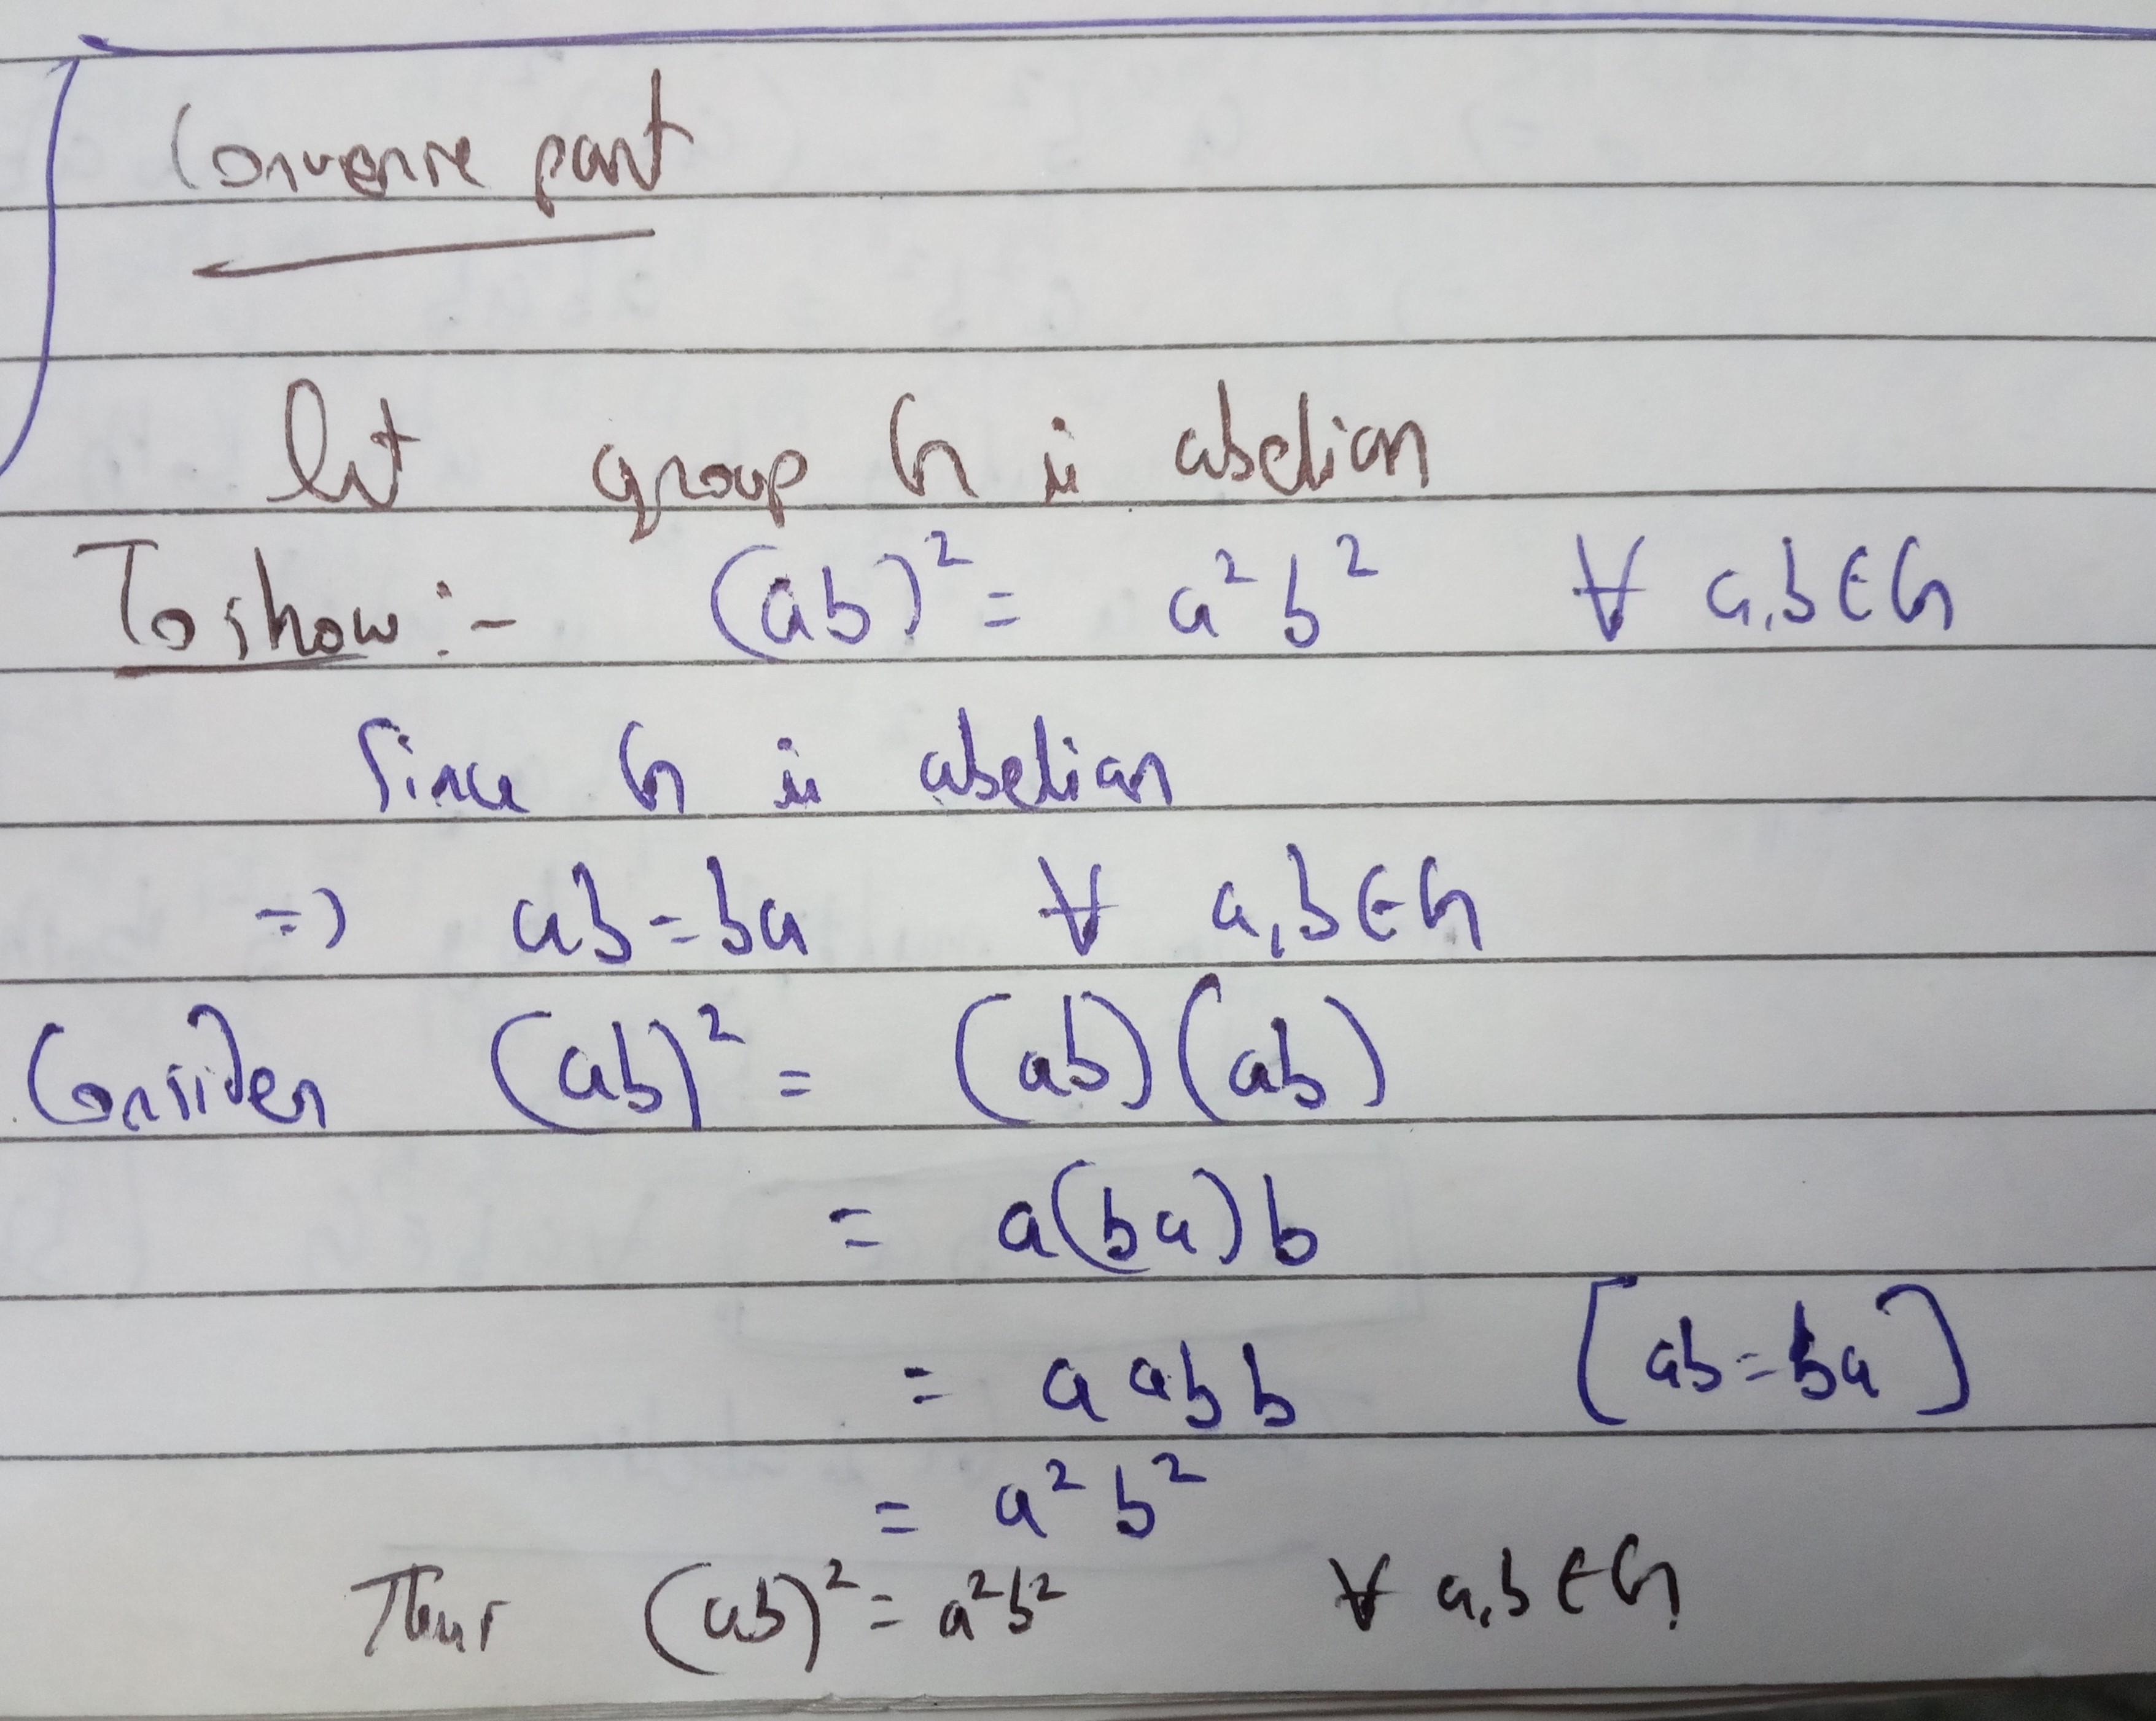 Converse part
let group G is abelian
To show :- (ab)² = a²b² ∀ a,b∈G
Since G is abelian
=> ab=ba ∀ a,b∈G
Consider (ab)² = (ab)(ab)
= a(ba)b
= a a b b [ab=ba]
= a² b²
Thus (ab)² = a²b² ∀ a,b∈G